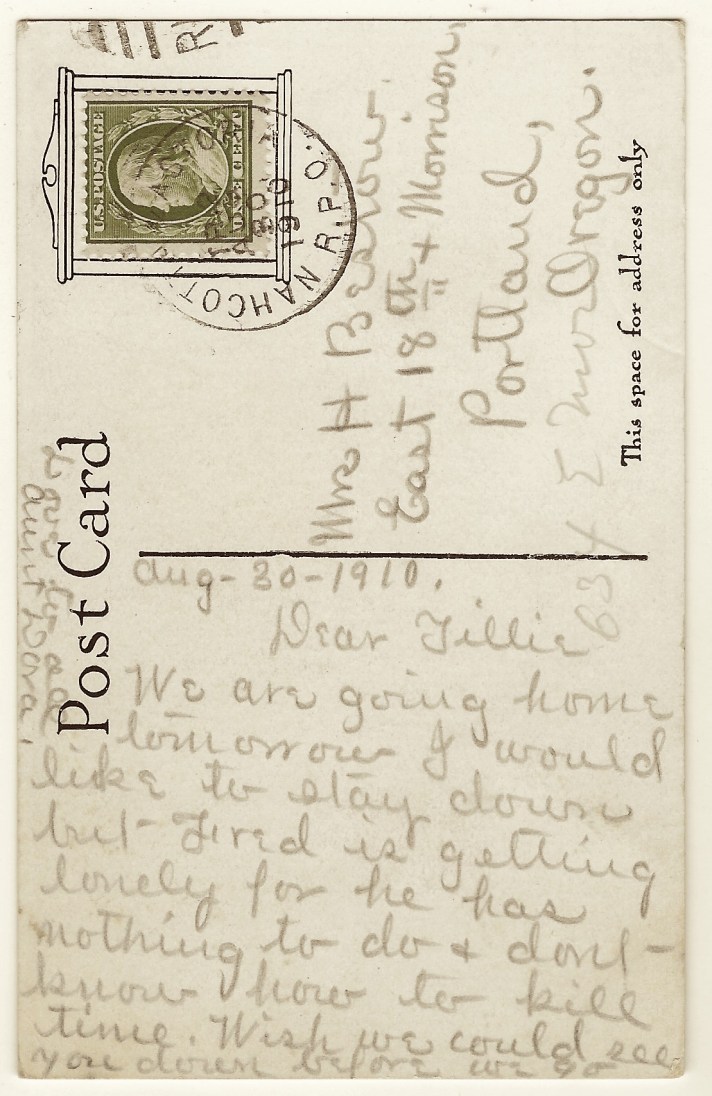 Post Card
This space for address only
U.S. POSTAGE
NAHCOTTA
R.P.O.
AUG
30
1910
Mrs H
East 18th & Morrison,
Portland,
Oregon.
634 E Mor
Aug-30-1910.
Dear Tillie
We are going home
tomorrow I would
like to stay down
but Fred is getting
lonely for he has
nothing to do & dont
know how to kill
time. Wish we could see
you down before we go
Love to all
Aunt Dora.